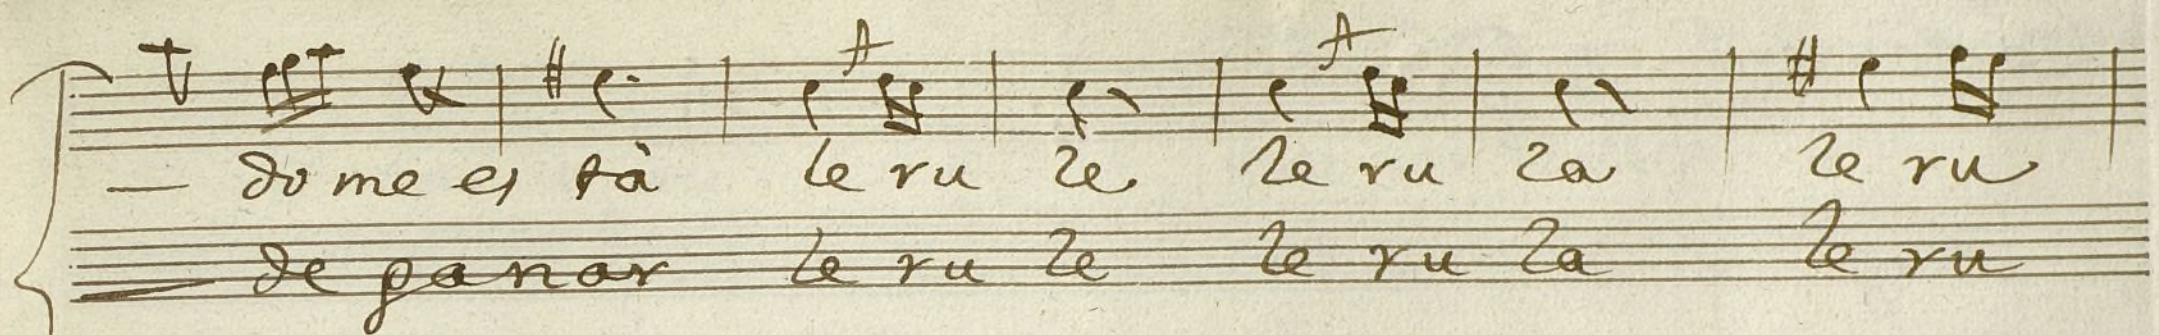 — do me es tà le ru le le ru la le ru
de ga nar le ru le le ru la le ru